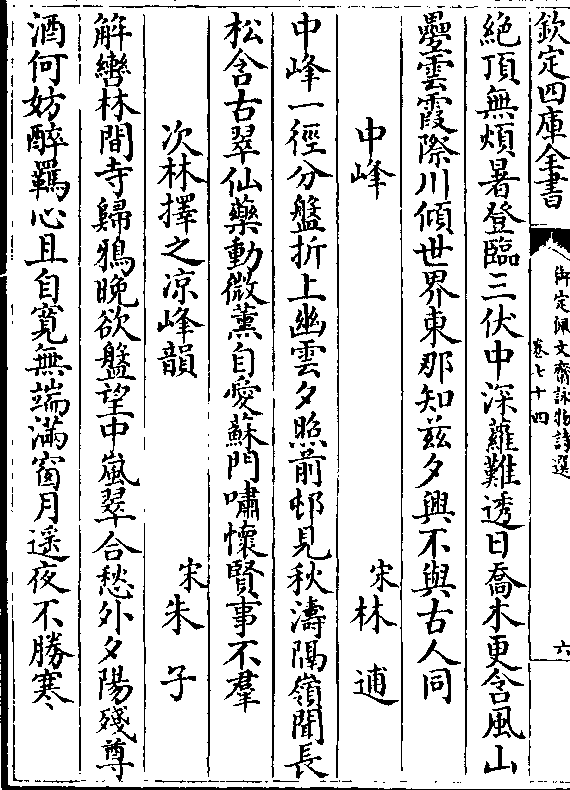 欽定四庫全書
御定佩文齋詠物詩選
卷七十四
六
絶頂無煩暑登臨三伏中深蘿難透日喬木更含風山
疊雲霞際川傾世界東那知兹夕興不與古人同
中峰
宋林逋
中峰一徑分盤折上幽雲夕照前邨見秋濤隔嶺聞長
松含古翠仙藥動微薰自愛蘇門嘯懷賢事不羣
次林擇之凉峰韻
宋朱子
解轡林間寺歸鴉晚欲盤望中嵐翠合愁外夕陽殘尊
酒何妨醉羈心且自寛無端滿窗月遥夜不勝寒